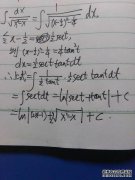 ∫ dx/√(x²-x) = ∫ 1/√((x-½)²-¼) dx,
令 x-½ = ½sect,
则 (x-½)²-¼ = ¼tan²t
dx = ½sect·tant dt
∴上式 = ∫ 1/(½tant) · ½sect·tant dt
= ∫ sect dt = ln|sect+tant| + C
= ln|(2x-1)+2√(x²-x)| + C.